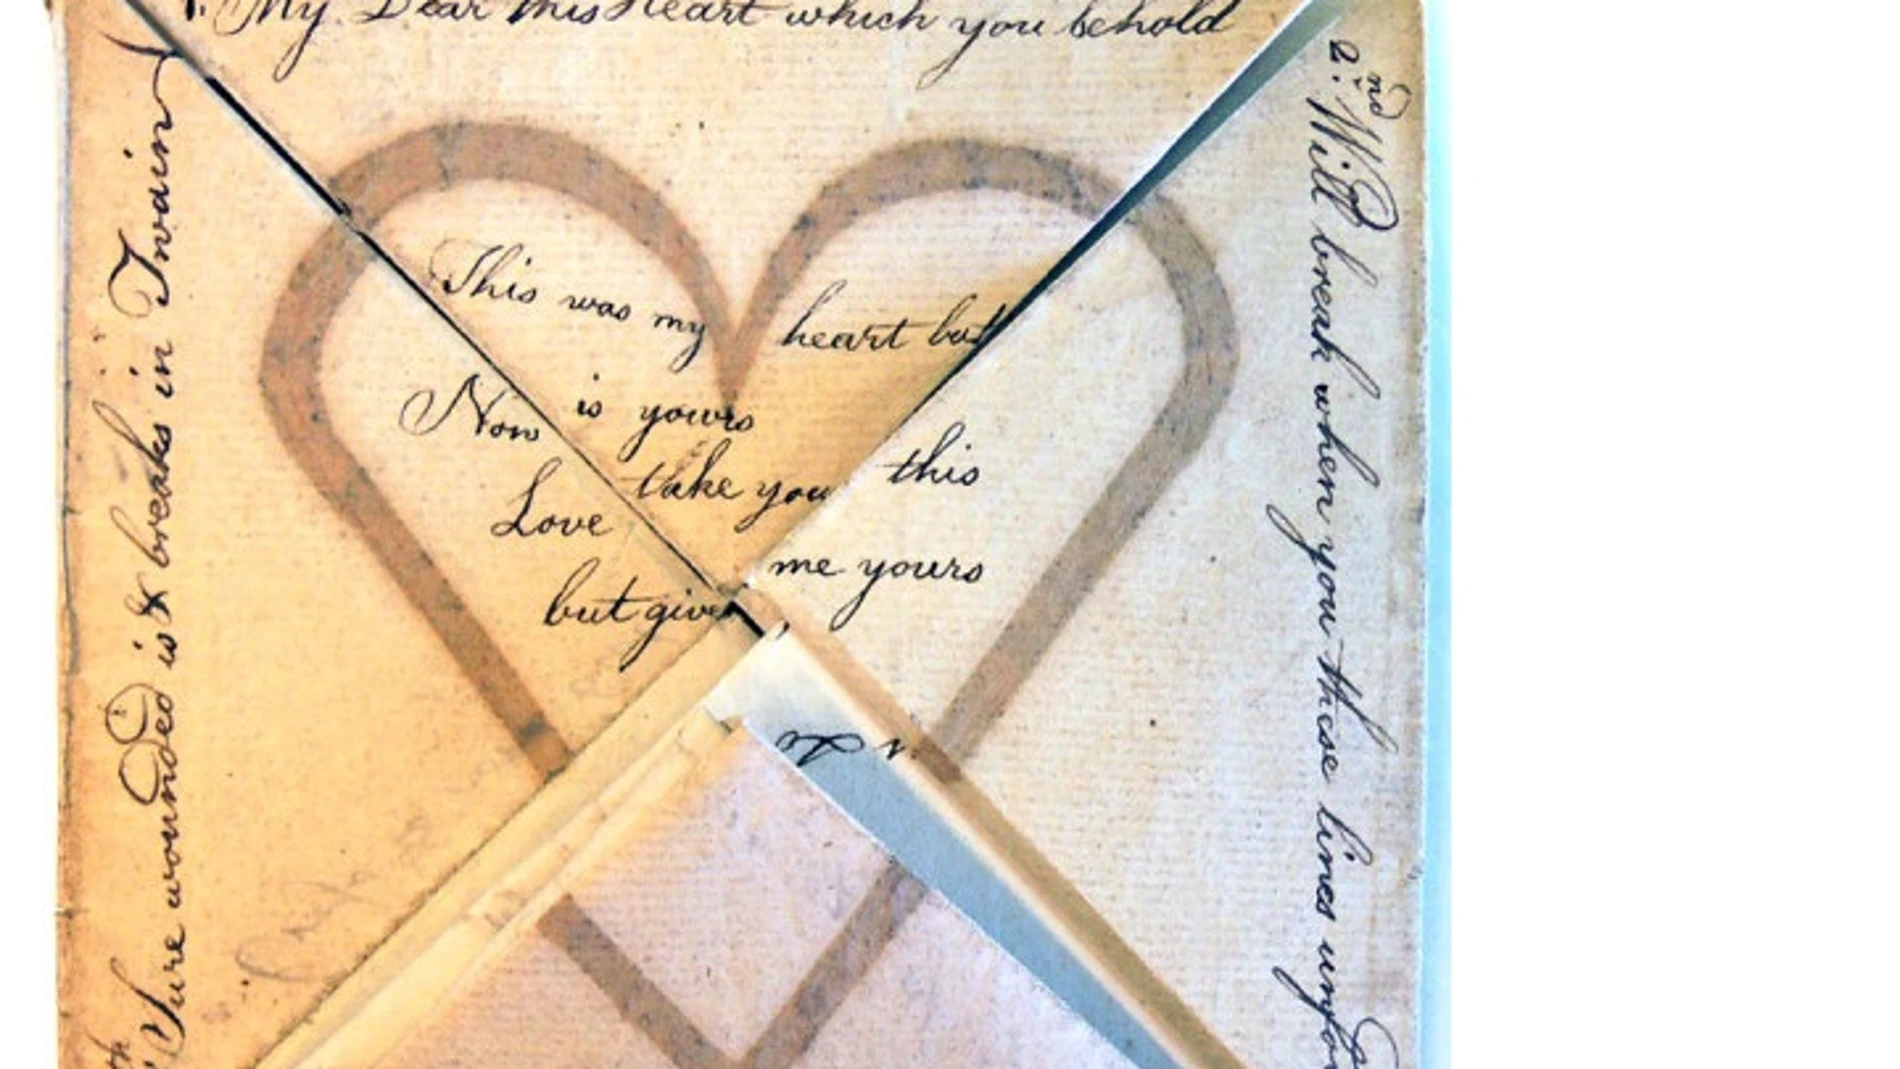 1. My Dear this Heart which you behold
2.nd Will break when you these lines unfo
This was my heart but
Now is yours
take you this
Love
but give me yours
th
Sure wounded is & breaks in Twain